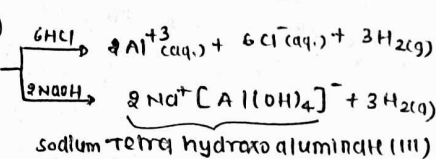 6HCl → 2Al⁺³(aq.) + 6Cl⁻(aq.) + 3H₂(g)
2NaOH → 2Na⁺[Al(OH)₄]⁻ + 3H₂(g)
sodium Tetra hydroxo aluminate (III)